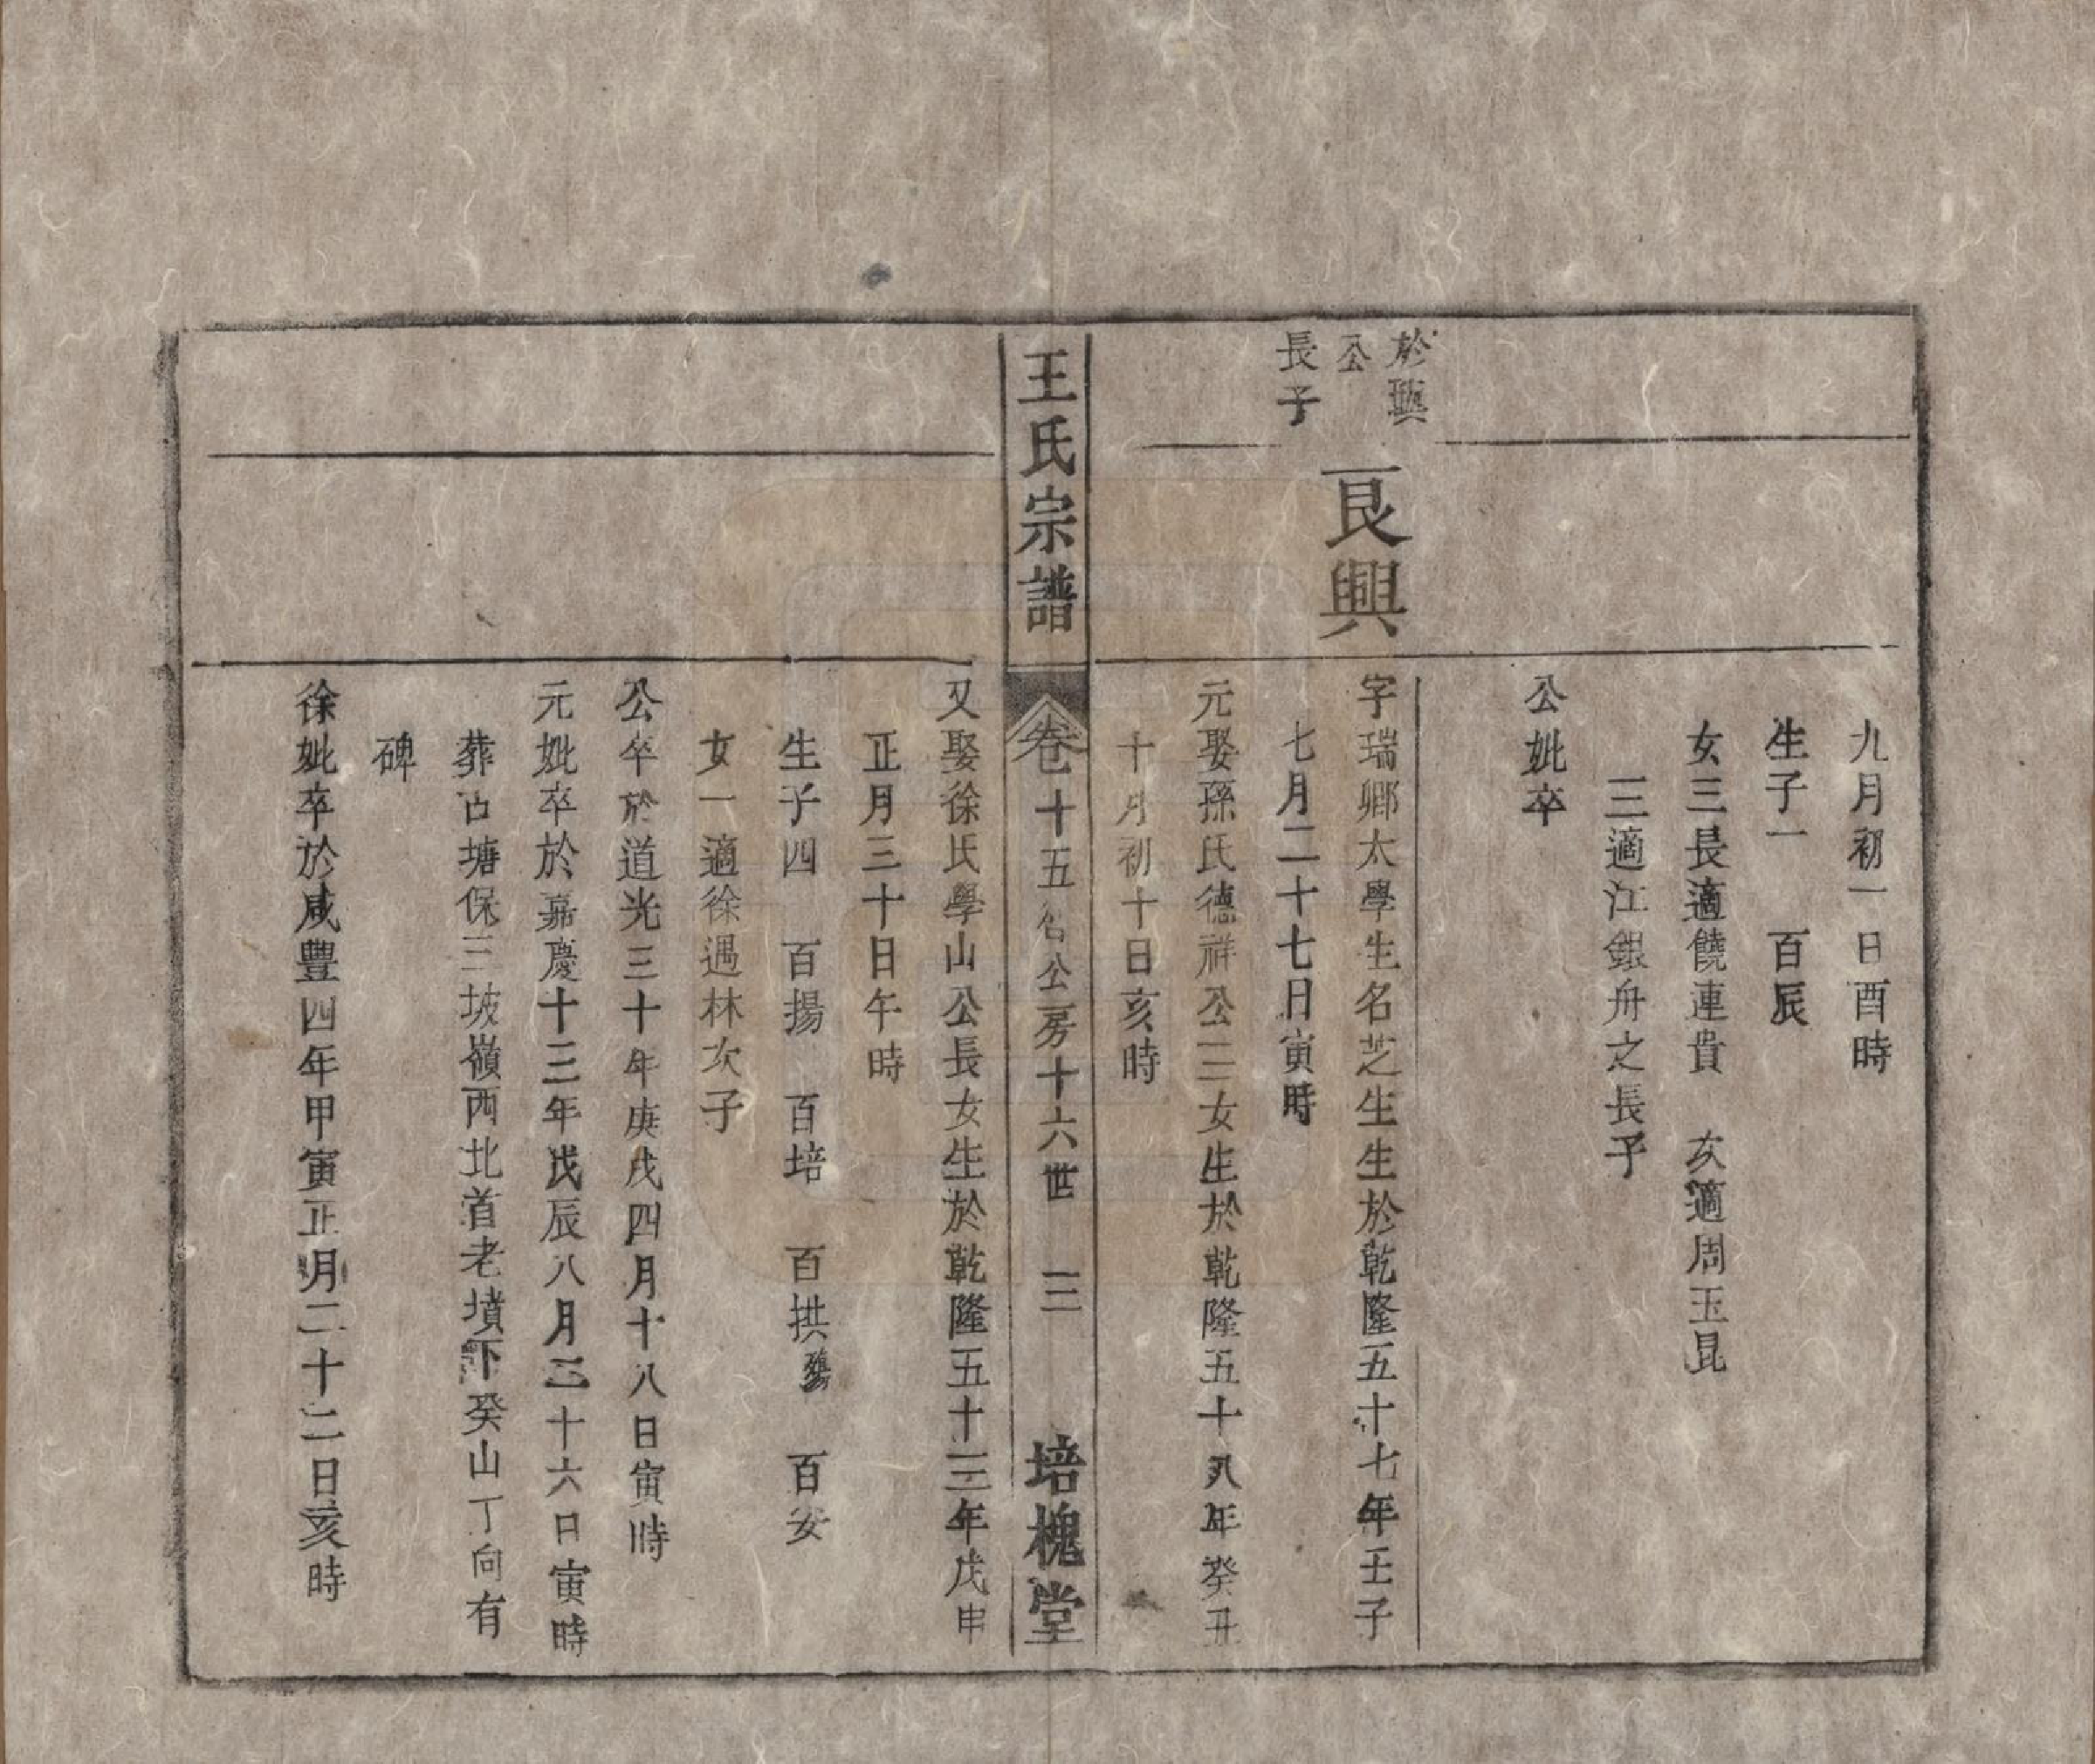 九月初一日酉時
生子一　百辰
女三長適饒連貴　次適周玉昆
三適江銀舟之長子
公妣卒
於璵
公
長子
良興
字瑞鄉太學生名芝生生於乾隆五十七年壬子
七月二十七日寅時
元娶孫氏德祥公三女生於乾隆五十八年癸丑
十月初十日亥時
王氏宗譜
卷十五
公房十六世　三
培槐堂
又娶徐氏學山公長女生於乾隆五十三年戊申
正月三十日午時
生子四　百揚　百培　百拱　百安
女一適徐遇林次子
公卒於道光三十年庚戌四月十八日寅時
元妣卒於嘉慶十三年戊辰八月二十六日寅時
葬古塘保三坡嶺西北首老墳下癸山丁向有
碑
徐妣卒於咸豐四年甲寅正月二十二日亥時